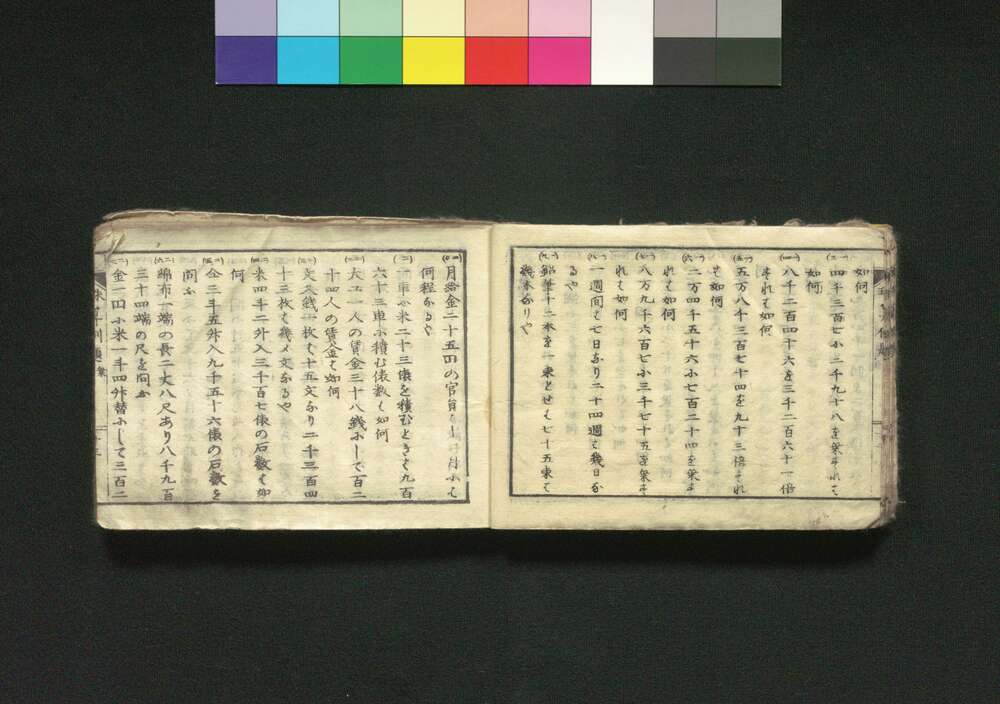 如何
四千三百七小二千九十八を乗すれば
如何
八千二百四十六を三千二百六十一倍
すれば如何
五万八千三百七十四を九十三倍すれ
ば如何
二万四千五十六小七百二十四を乗す
れば如何
八万九千六百七小三千七十五を乗す
れば如何
一週間は七日なり二十四週は幾日な
るや
鉛筆十二本を一束とせば七十五束は
幾本なりや
月給金二十五円の官員
何程なるや
車小米二十三俵を積むときは九百
六十三車小積む俵数は如何
大工一人の賃金三十八銭ふして百二
十四人の賃金は如何
文久銭一枚は十五文なり二千三百四
十三枚は幾文なるや
米四斗二升入三千百七俵の石数は如
何
仝三斗五升入九千五十六俵の石数を
問ふ
綿布一端の長二丈八尺あり八千九百
三十四端の尺を問ふ
金一円小米一斗四升替ふして三百二